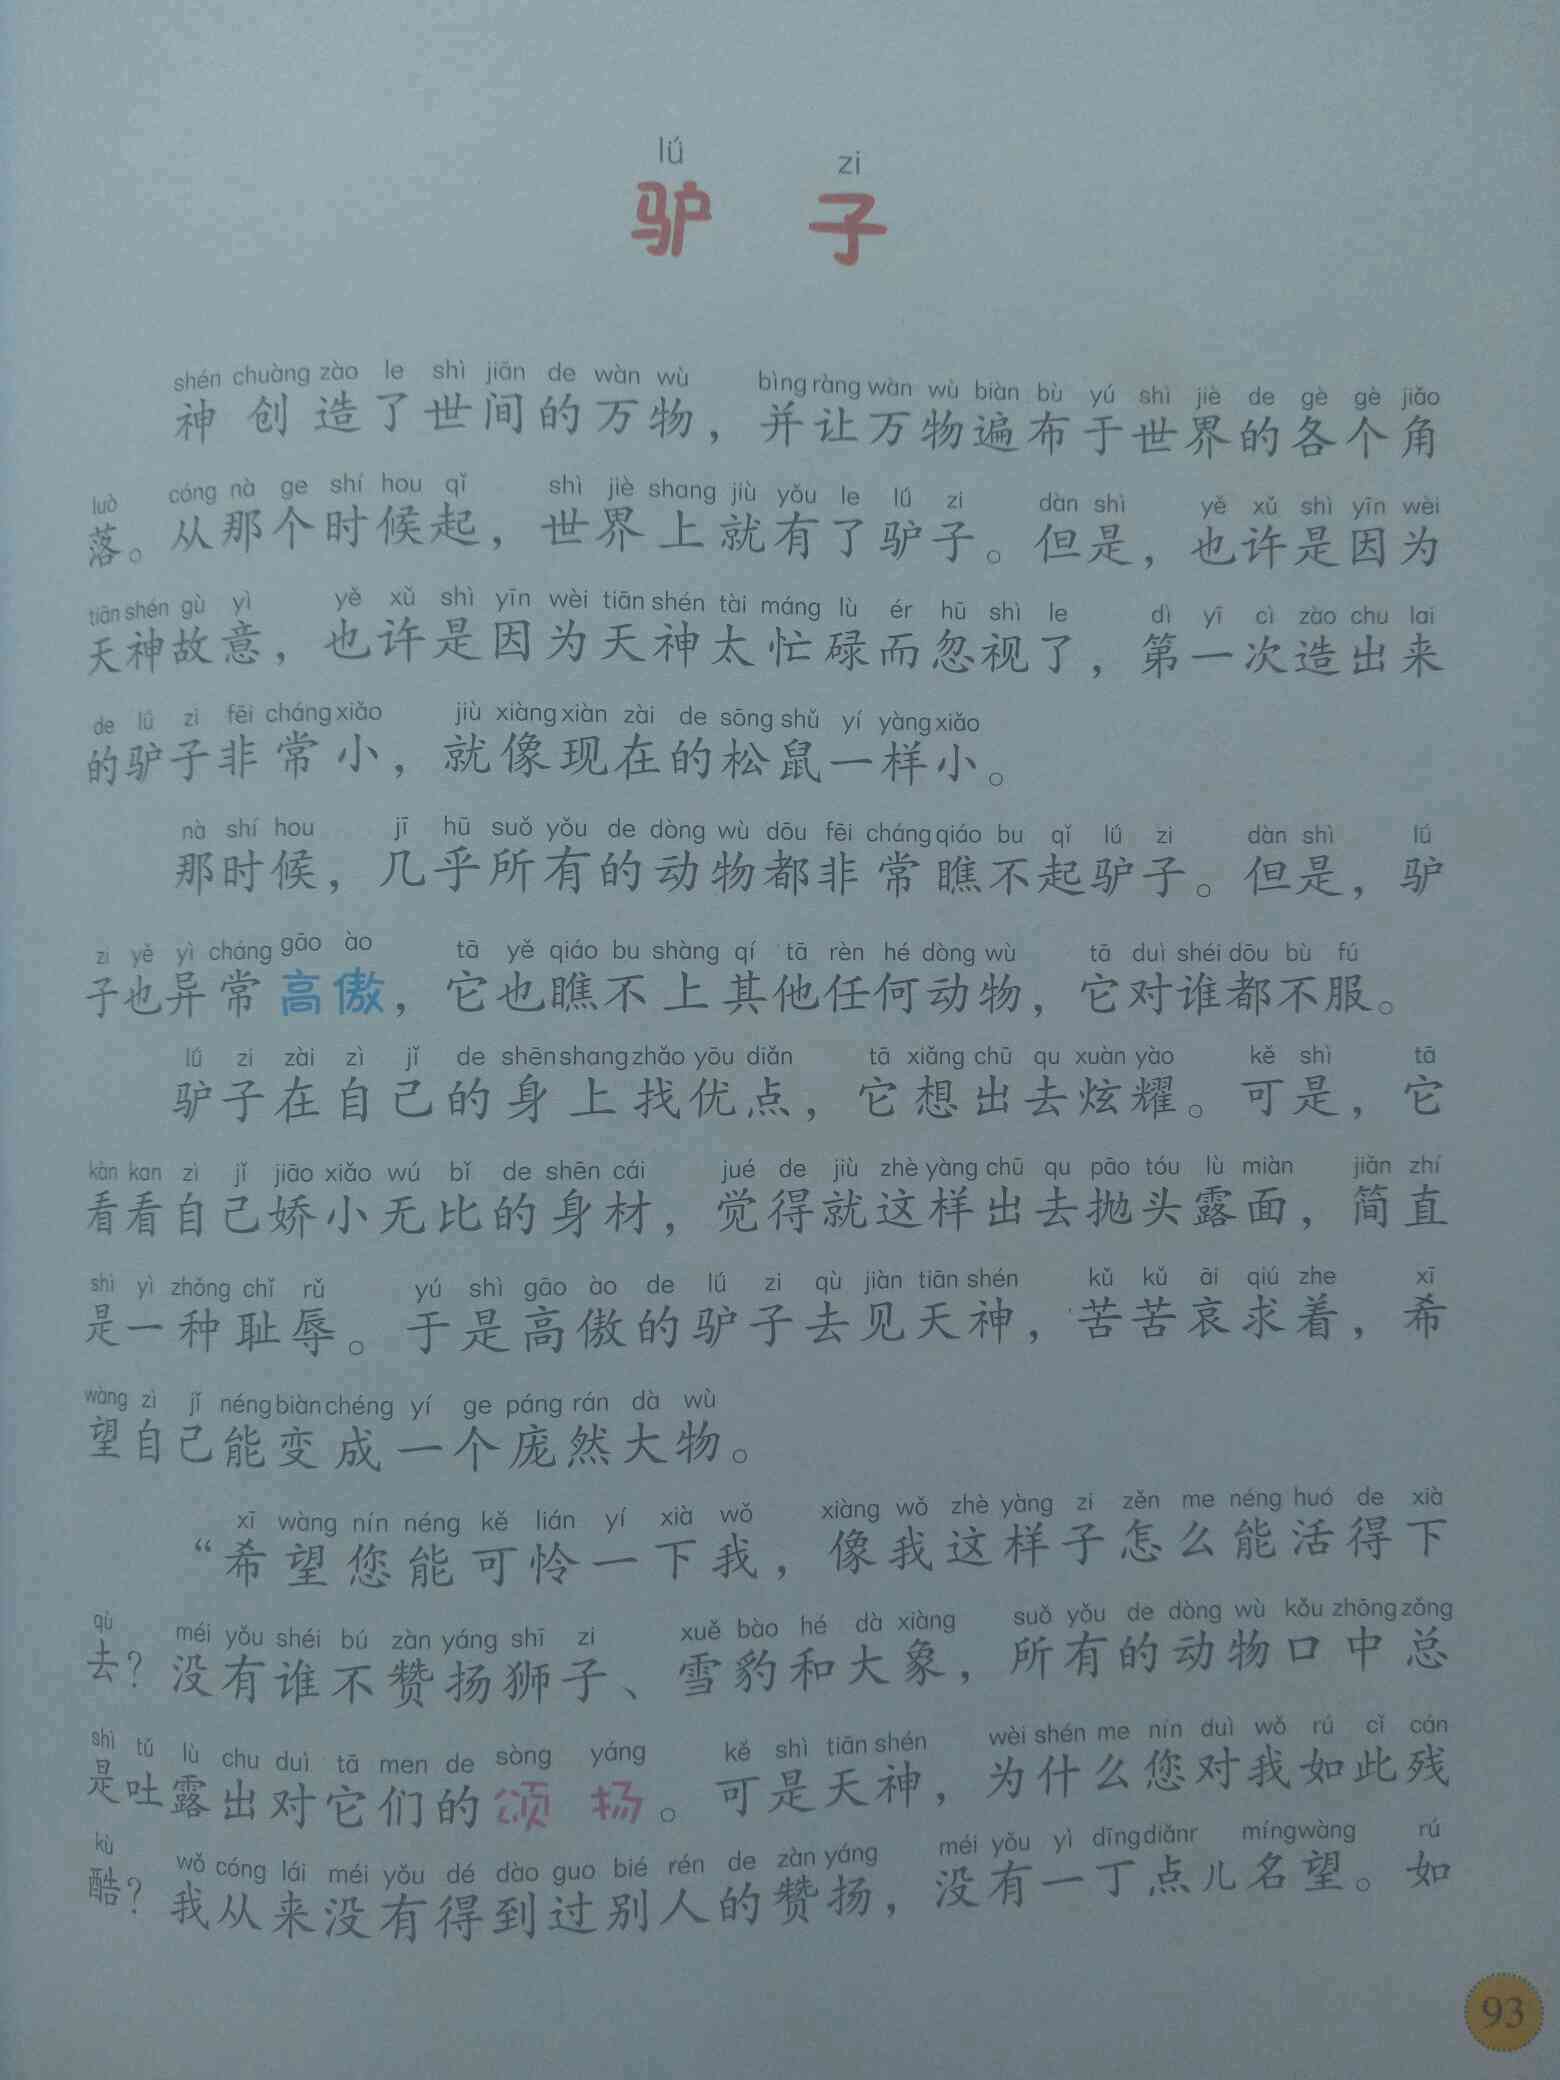 lú zi
驴 子
shén chuàng zào le shì jiān de wàn wù bìng ràng wàn wù biàn bù yú shì jiè de gè gè jiǎo
神创造了世间的万物，并让万物遍布于世界的各个角
luò cóng nà ge shí hou qǐ shì jiè shang jiù yǒu le lú zi dàn shì yě xǔ shì yīn wèi
落。从那个时候起，世界上就有了驴子。但是，也许是因为
tiān shén gù yì yě xǔ shì yīn wèi tiān shén tài máng lù ér hū shì le dì yī cì zào chu lai
天神故意，也许是因为天神太忙碌而忽视了，第一次造出来
de lǘ zi fēi cháng xiǎo jiù xiàng xiàn zài de sōng shǔ yí yàng xiǎo
的驴子非常小，就像现在的松鼠一样小。
nà shí hou jī hū suǒ yǒu de dòng wù dōu fēi cháng qiáo bu qǐ lú zi dàn shì lú
那时候，几乎所有的动物都非常瞧不起驴子。但是，驴
zi yě yì cháng gāo ào tā yě qiáo bu shàng qí tā rèn hé dòng wù tā duì shéi dōu bù fú
子也异常高傲，它也瞧不上其他任何动物，它对谁都不服。
lú zi zài zì jǐ de shēn shang zhǎo yōu diǎn tā xiǎng chū qu xuàn yào kě shì tā
驴子在自己的身上找优点，它想出去炫耀。可是，它
kàn kan zì jǐ jiāo xiǎo wú bǐ de shēn cái jué de jiù zhè yàng chū qu pāo tóu lù miàn jiǎn zhí
看看自己娇小无比的身材，觉得就这样出去抛头露面，简直
shì yì zhǒng chǐ rǔ yú shì gāo ào de lú zi qù jiàn tiān shén kǔ kǔ āi qiú zhe xī
是一种耻辱。于是高傲的驴子去见天神，苦苦哀求着，希
wàng zì jǐ néng biàn chéng yí ge páng rán dà wù
望自己能变成一个庞然大物。
xī wàng nín néng kě lián yí xià wǒ xiàng wǒ zhè yàng zi zěn me néng huó de xià
“希望您能可怜一下我，像我这样子怎么能活得下
qù méi yǒu shéi bú zàn yáng shī zi xuě bào hé dà xiàng suǒ yǒu de dòng wù kǒu zhōng zǒng
去？没有谁不赞扬狮子、雪豹和大象，所有的动物口中总
shì tǔ lù chu duì tā men de sòng yáng kě shì tiān shén wèi shén me nín duì wǒ rú cǐ cán
是吐露出对它们的颂扬。可是天神，为什么您对我如此残
kù wǒ cóng lái méi yǒu dé dào guo bié rén de zàn yáng méi yǒu yì dīng diǎnr míng wàng rú
酷？我从来没有得到过别人的赞扬，没有一丁点儿名望。如
93